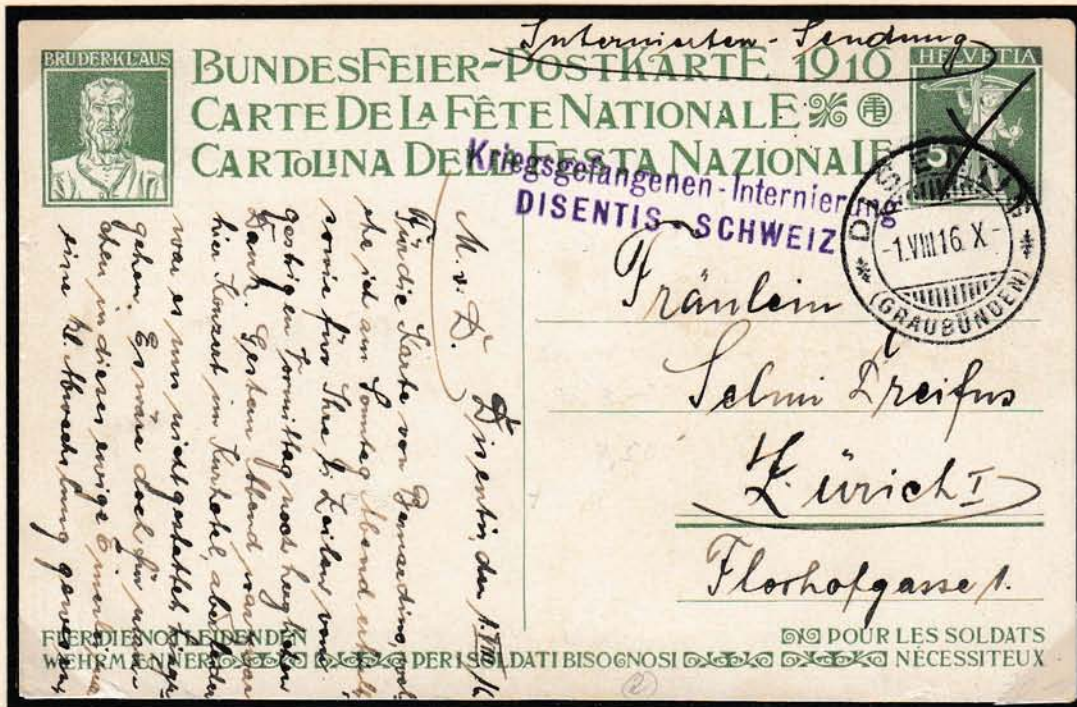 Internierten-Sendung
BRUDER·KLAUS
HELVETIA
BUNDESFEIER-POSTKARTE 1916
CARTE DE LA FÊTE NATIONALE
CARTOLINA DELLA FESTA NAZIONALE
5
Kriegsgefangenen-Internierung
DISENTIS - SCHWEIZ
DISENTIS
-1.VIII.16. X-
(GRAUBÜNDEN)
Fräulein
Selmi Dreifus
Zürich I
Florhofgasse 1.
Disentis, den 1. VIII 16
M. v. D.
Für die Karte von Bernardino, wel-
che ich am Sonntag Abend erhalten,
sowie für Ihre l. Zeilen vom
gestrigen Vormittag noch herzlichen
Dank. Gestern Abend war
hier Konzert im Kurhotel, aber leider
war es uns nicht gestattet
gehen. Es wäre doch für uns
in dieses ewige Einerlei
eine kl. Abwechslung gewesen,
FUER DIE NOTLEIDENDEN
WEHRMÆNNER
PER I SOLDATI BISOGNOSI
POUR LES SOLDATS
NÉCESSITEUX